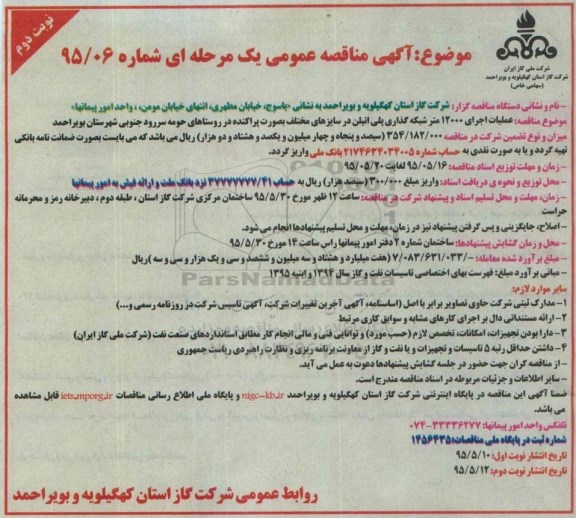 نوبت دوم
شرکت ملی گاز ایران
شرکت گاز استان کهگیلویه و بویراحمد
(سهامی خاص)
موضوع: آگهی مناقصه عمومی یک مرحله ای شماره ۹۵/۰۶
- نام و نشانی دستگاه مناقصه گزار: شرکت گاز استان کهگیلویه و بویراحمد به نشانی «یاسوج، خیابان مطهری، انتهای خیابان مومن، ، واحد امور پیمانها»
موضوع مناقصه: عملیات اجرای ۱۲۰۰۰ متر شبکه گذاری پلی اتیلن در سایزهای مختلف بصورت پراکنده در روستاهای حومه سررود جنوبی شهرستان بویراحمد
میزان و نوع تضمین شرکت در مناقصه ۳۵۴/۱۸۲/۰۰۰ (سیصد و پنجاه و چهار میلیون و یکصد و هشتاد و دو هزار) ریال می باشد که می بایست بصورت ضمانت نامه بانکی
تهیه گردد و یا به صورت نقدی به حساب شماره ۲۱۷۴۶۳۴۰۳۴۰۰۵ بانک ملی واریز گردد.
- زمان و مهلت توزیع اسناد مناقصه: ۹۵/۰۵/۱۶ لغایت ۹۵/۰۵/۲۰
- محل توزیع و نحوه ی دریافت اسناد: واریز مبلغ ۳۰۰/۰۰۰ (سیصد هزار) ریال به حساب ۳۷۷۷۷۷۷۷/۴۱ نزد بانک ملت و ارائه فیش به امور پیمانها
- زمان، مهلت و محل تسلیم اسناد و پیشنهاد شرکت در مناقصه: ساعت ۱۲ ظهر مورخ ۹۵/۵/۳۰ ساختمان مرکزی شرکت گاز استان ، طبقه دوم ، دبیرخانه رمز و محرمانه
حراست
- اصلاح، جایگزینی و پس گرفتن پیشنهاد نیز در زمان، مهلت و محل تسلیم پیشنهادها انجام می شود.
- محل و زمان گشایش پیشنهادها: ساختمان شماره ۲ دفتر امور پیمانها راس ساعت ۱۴ مورخ ۹۵/۵/۳۰
- مبلغ برآورد شده معامله: -/۷/۰۸۳/۶۳۱/۰۳۳ (هفت میلیارد و هشتاد و سه میلیون و ششصد و سی و یک هزار و سی و سه) ریال
- مبانی برآورد مبلغ: فهرست بهای اختصاصی تاسیسات نفت و گاز سال ۱۳۹۴ و ابنیه ۱۳۹۵
سایر موارد لازم:
۱- مدارک ثبتی شرکت حاوی تصاویر برابر با اصل (اساسنامه، آگهی آخرین تغییرات شرکت، آگهی تاسیس شرکت در روزنامه رسمی و...)
۲- ارائه مستنداتی دال بر اجرای کار های مشابه و سوابق کاری مرتبط
۳- دارا بودن تجهیزات، امکانات، تخصص لازم (حسب مورد) و توانایی فنی و مالی انجام کار مطابق استانداردهای صنعت نفت (شرکت ملی گاز ایران)
۴- داشتن حداقل رتبه ۵ تاسیسات و تجهیزات و یا نفت و گاز از معاونت برنامه ریزی و نظارت راهبردی ریاست جمهوری
- از مناقصه گران جهت حضور در جلسه گشایش پیشنهادها دعوت به عمل می آید.
- سایر اطلاعات و جزئیات مربوطه در اسناد مناقصه مندرج است.
ضمنا آگهی این مناقصه در پایگاه اینترنتی شرکت گاز استان کهگیلویه و بویراحمد nigc-kb.ir و پایگاه ملی اطلاع رسانی مناقصات iets.mporg.ir قابل مشاهده
می باشد.
تلفکس واحد امور پیمانها: ۳۳۳۳۶۲۷۷-۰۷۴
شماره ثبت در پایگاه ملی مناقصات: ۱۴۵۶۴۳۵
تاریخ انتشار نوبت اول: ۹۵/۵/۱۰
تاریخ انتشار نوبت دوم: ۹۵/۵/۱۲
روابط عمومی شرکت گاز استان کهگیلویه و بویراحمد
ParsNamadData